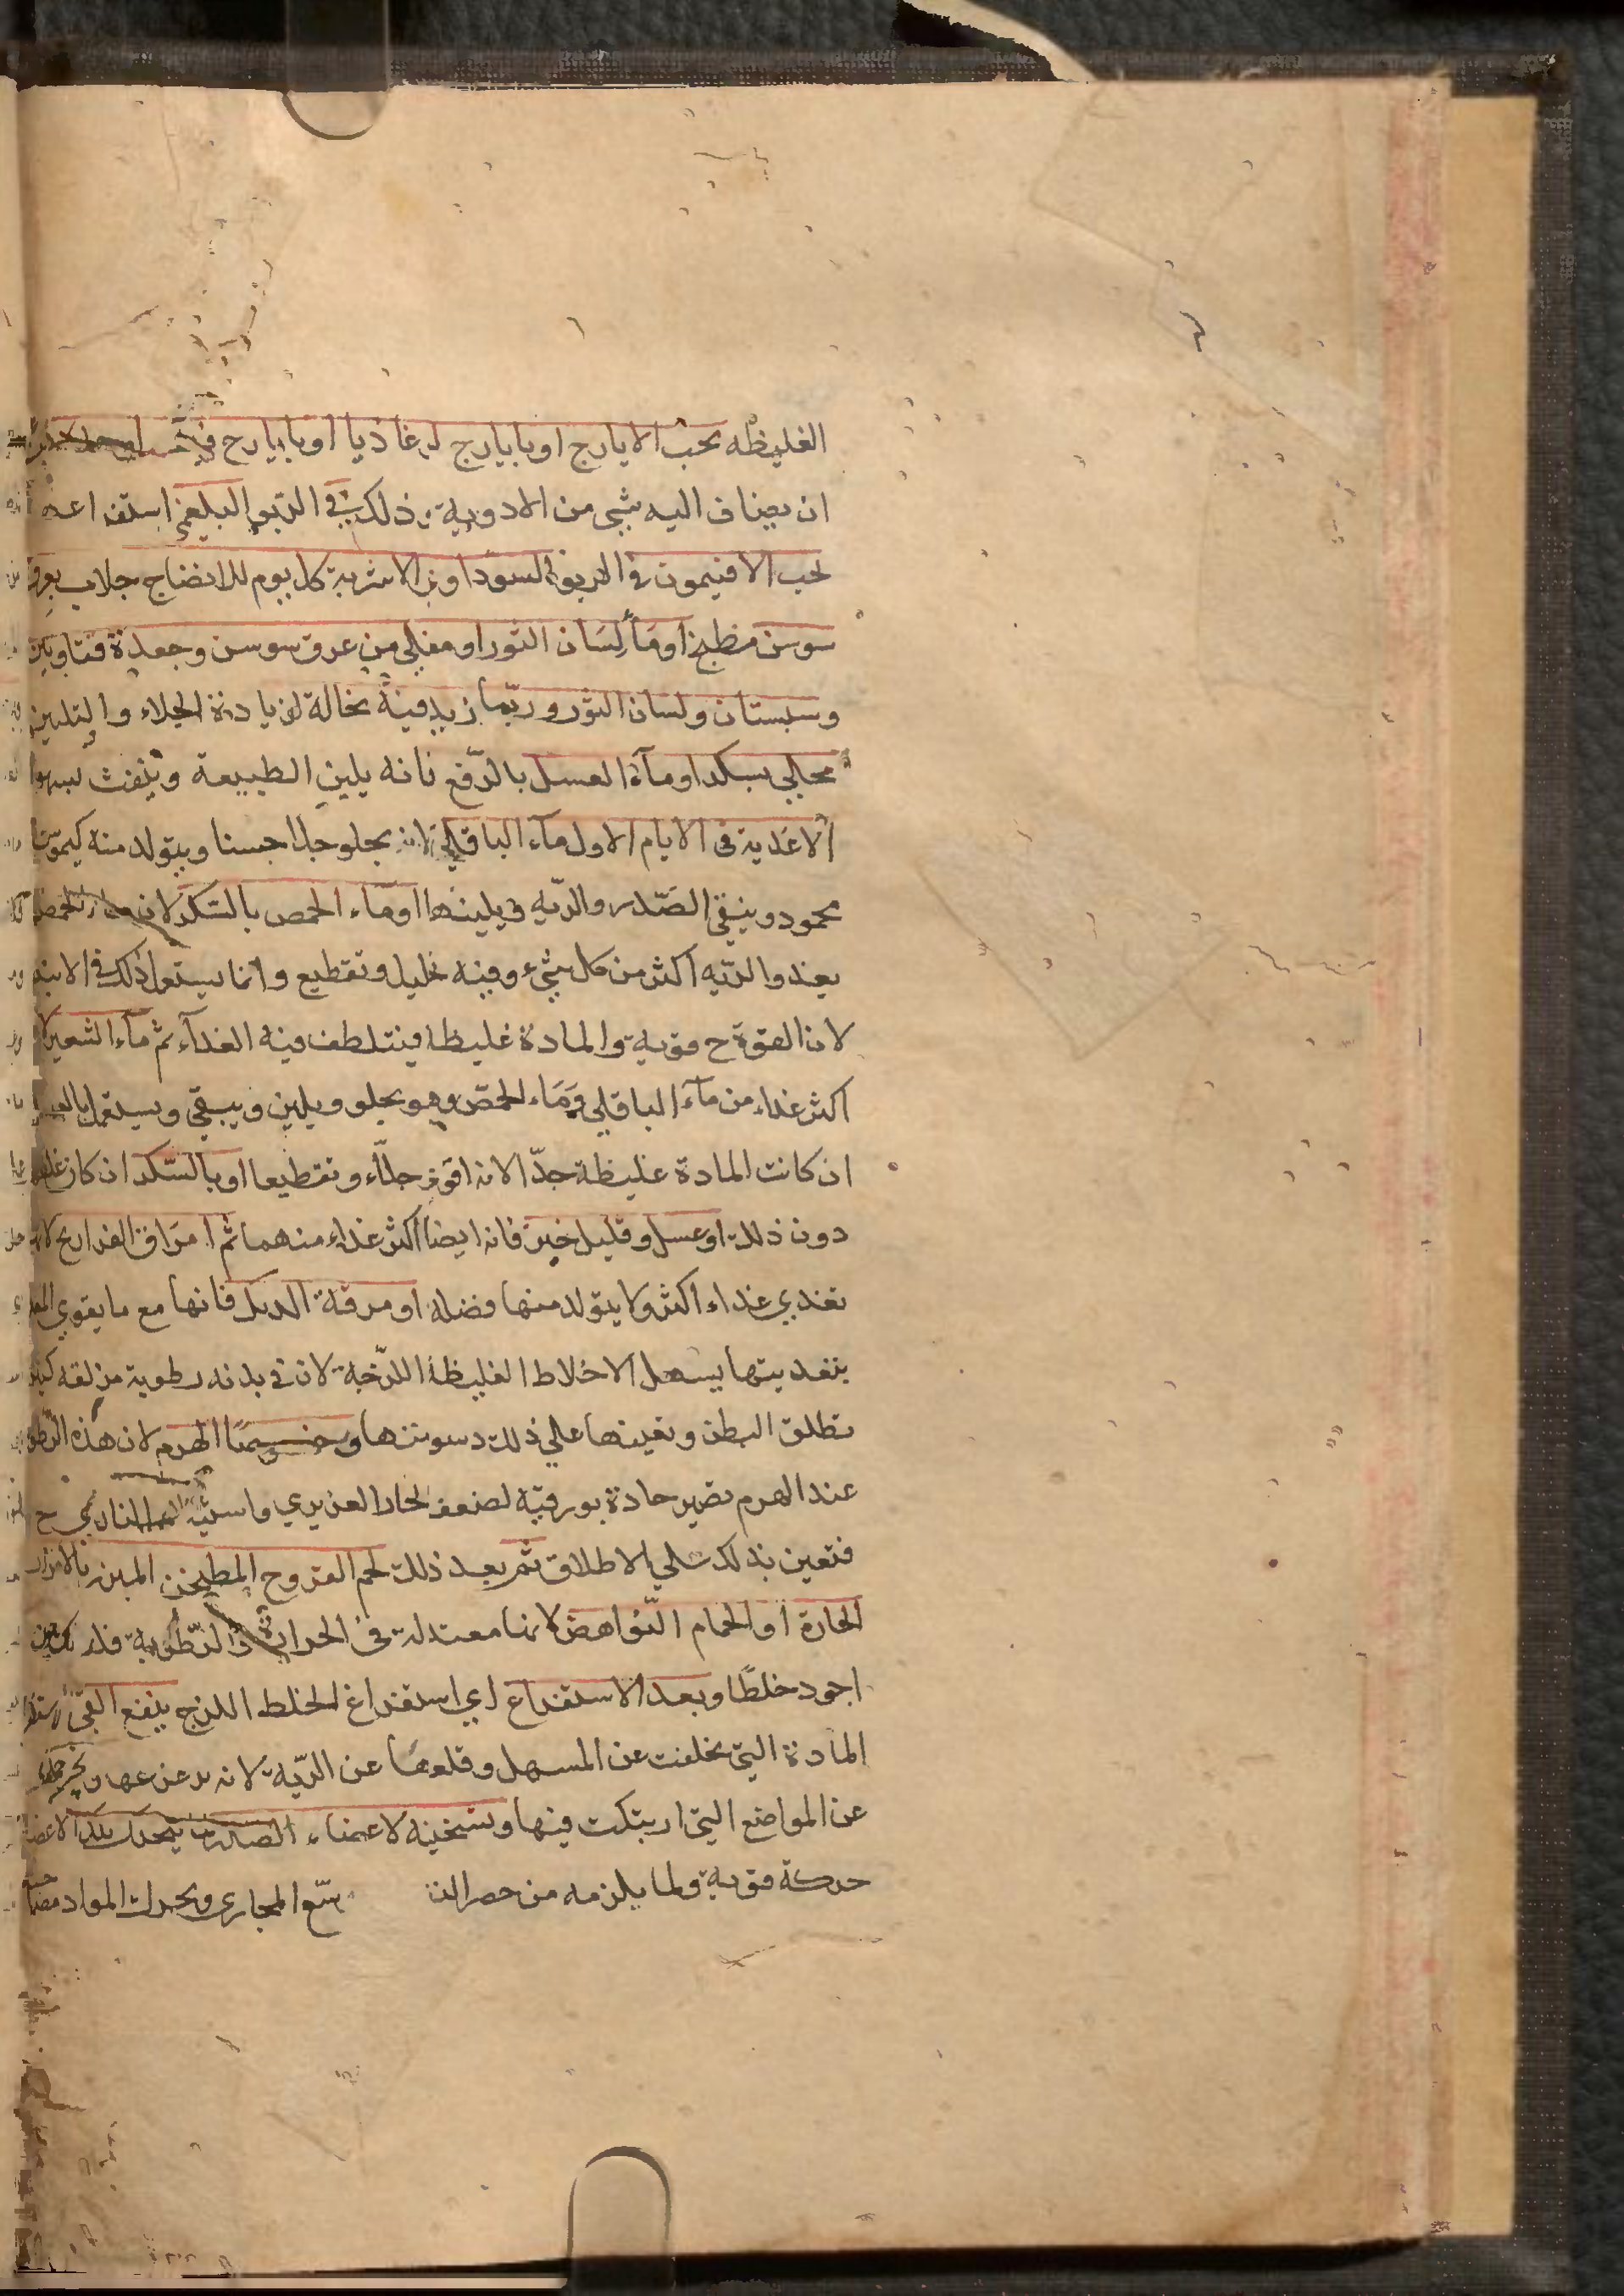 الغليظه بحب الايارج او بايارج لوغاذيا او بايارح
ان يضاف اليه شي من الادوية ذلك في الربو البلغمي استفراغه
بحب الافتيمون في الربو السوداوي الاشربة كل يوم للانضاج جلاب بعرق
سوسن مطبخ او ماء لسان الثور او مغلي من عرق سوسن وجعدة قناوين
وسبستان ولسان الثور وربما زيد فيه نخالة لزيادة الجلاء والتليين
محلي بسكر او ماء العسل بالرفع فانه يلين الطبيعة وينفث بسهو
الاغدية في الايام الاول ماء الباقلي لانه يجلو جلاا حسنا ويتولد منه كيموسا
محمود وينقي الصدر والريه ويلينها او ماء الحمص بالسكر لان الحمص
يعدوا الريه اكثر من كل شيء وفيه تحليل وتقطيع وانما يستعمل ذلك في الابتد
لان القوة ح قوية والمادة غليظة فيتلطف فيه الغدآء ثم ماء الشعير لا
اكثر غداء من ماء الباقلي وماء الحمص وهو يجلو ويلين وينقي ويستعمل بالعسل
ان كانت المادة غليظة جدّا لانه اقوي جلاّء وتقطيعا او بالسّكر ان كان
دون ذلك او عسل وقليل خبز فانه ايضا اكثر غداء منهما ثم امراق الفراريح لانها
تغدي غداء اكثر ولا يتولد منها فضله او مرقة الديك فانها مع ما يقوي
بتغديتها يسهل الاخلاط الغليظة اللزجة لان في بدنه رطوبة مزلقه
تطلق البطن وتعينها علي ذلك دسومتها وخصوصا الهرم لان هذه الرطو
عند الهرم تصير حادة بورقيه لضعف الحار الغريزي واستيلا الناري ح
فتعين بذلك علي الاطلاق ثم بعد ذلك لحم الفروج المطيخن المبزر بالابزار
الحارة او الحمام النواهض لانها معتدلة في الحرارة والرطوبة فلذلك يكون
اجود خلطا وبعد الاستفراغ اي استفراغ الخلط اللزج ينفع القي
المادة التي تخلفت عن المسهل وقلعها عن الريّة لانه يزعزعها ويخرجها
عن المواضع التي ارتبكت فيها وتسخينه لاعضاء الصدر بتحريك تلك الاعضا
حركة قوية ولما يلزمه من حصر النـ ـسع المجاري ويحرك المواد